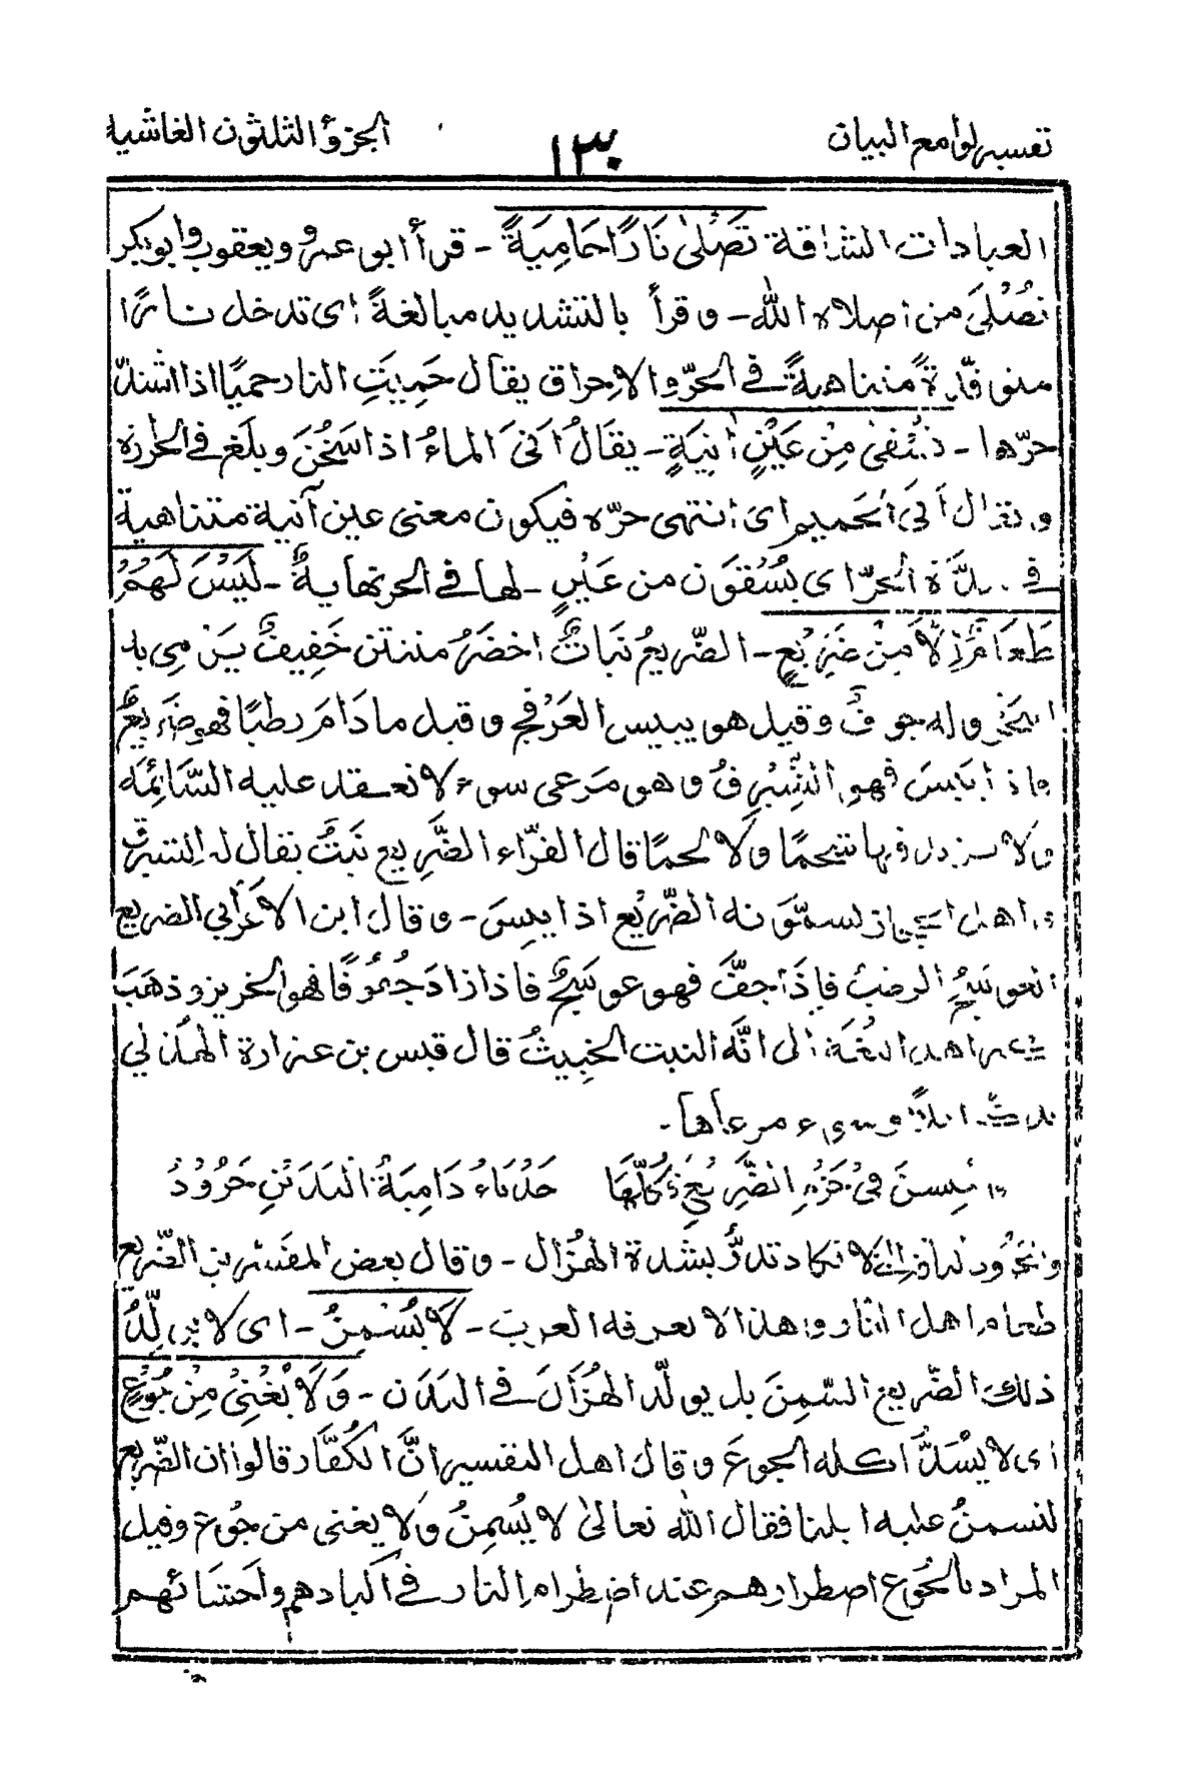 تفسير لوامع البيان ١٣٠ الجزؤ الثلثون الغاشية
العبادات الشاقة تَصْلىٰ نَارًا حَامِيَةً - قرأ ابو عمرو ويعقوب وابوبكر
تُصْلىَٰ من اصلاه الله - وقرأ بالتشديد مبالغةً اى تدخل نارًا
متناهيةً في الحرّ والاحراق يقال حَمِيَتِ النار حميًا اذا اشتدّ
حرّها - تُسْقىٰ مِنْ عَيْنٍ اٰنِيَةٍ - يقَالُ اَنىَ الماءُ اذا سَخُنَ وبلَغ في الحرارة
ويقال اَنىَ الحَميم اى انتهى حرّه فيكون معنى عين آنية متناهية
في شدَّة الحرّ اى يُسْقَون من عَيْنٍ - لها في الحر نهايةٌ - لَيْسَ لَهُمْ
طَعَامٌ اِلَّا مِنْ ضَرِيْعٍ - الضّريعُ نَبَاتٌ اخضَرُ منتن خَفِيفٌ يَرْمِى به
البحر وله جوفٌ وقيل هو يبيس العَرْفج وقيل ما دَامَ رطبًا فهو ضَرِيعٌ
واذا يَبَسَ فهو الشِّبْرِقُ وهو مَرعى سوء لا تعقد عليه السَّائمة
ولا لحمًا قال الفرّاء الضَّرِيع نَبَتٌ يقال له الشبرق
واهل الحجاز يسمّونه الضَّرِيْع اذا يبِسَ - وقال ابن الاعرابي الضريع
العوسَجُ الرطبُ فاذَا جفَّ فهو عوسَجٌ فاذا زادَ جُفُوفًا فهو الخريز وذهَبَ
اهل اللغَة الى انّه النبت الخبِيثُ قال قيس بن عيزارة الهذلي
ابلاً وسوء مرعاها -
وحُبِسنَ فيْ هَزمِ الضَّرِيْعِ فكُلّهَا حَدْبَاءُ دَامِيَةُ اليَدَيْنِ حَرُوْدُ
لا تكاد تدرُّ بشدة الهُزال - وقال بعض المفسّرين الضّريع
طعام اهل النار وهذا لا يعرفه العربُ - لَا يُسْمِنُ - اى لا يولِّدُ
ذلك الضّريع السِّمنَ بل يولّد الهُزَالَ في البَدَن - وَلَا يُغْنِيْ مِنْ جُوْعٍ
اى لا يَسُدُّ اكله الجوعَ وقال اهل التفسير انَّ الكُفَّار قالوا ان الضّريع
لتسمنُ عليه ابلنا فقال الله تعالىٰ لا يُسْمِنُ وَلا يغنى من جُوع وقيل
المراد بالجُوع اضطرارهم عند اضطرام النار في اكبادهم واحشائهم